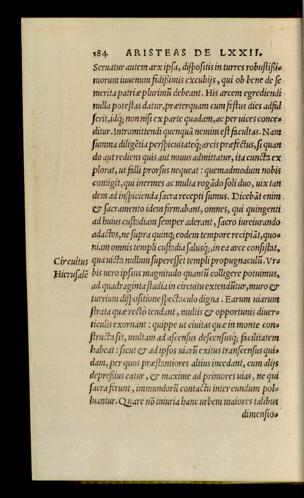 184 ARISTEAS DE LXXII.
Seruatur autem arx ipsa, dispositis in turres robustißi-
morum iuuenum fidißimis excubijs, qui ob bene de se
merita patriæ plurimũ debeant. His arcem egrediendi
nulla potestas datur, præterquam cum festus dies adfulserit,
idq; non nisi ex parte quadam, ac per uices concе-
ditur. Intromittendi quenquã nemini est facultas. Nam
summa diligẽtia perspicuitateq; arcis præfectus, si quan
do aut rediens quis aut nouus admittatur, ita cuncta ex
plorat, ut falli prorsus nequeat: quemadmodum nobis
contigit, qui inermes ac multa rogãdo soli duo, uix tan
dem ad inspicienda sacra recepti sumus. Dicebãt enim
& sacramento idem firmabant, omnes, qui quingenti
ad huius custodiam semper aderant, sacro iureiurando
adactos, ne supra quinq; eodem tempore recipiãt, quo-
niam omnis templi custodia salusq;, in ea arce consistat,
Circuitus Hierusalẽ
qua uicta nullum superesset templi propugnaculũ. Vr-
bis uero ipsius magnitudo quantũ colligere potuimus,
ad quadraginta stadia in circuitu extendũtur, muro &
turrium dispositione spectaculo digna. Earum uiarum
strata quæ recto tendant, multis & opportunis diuer-
ticulis exornant: quippe ut ciuitas quæ in monte con-
structa sit, multam ad ascensus descensusq; facilitatem
habeat: sicut & ad ipsos uiarũ exitus transcensus qui-
dam, per quos præstantiores altius incedant, cum alijs
depreßius eatur, & maxime ad primores uias, ne qui
sacra ferunt, immundorũ contactu inter eundum pol-
luantur. Quare nõ iniuria hanc urbem maiores talibus
dimensio-